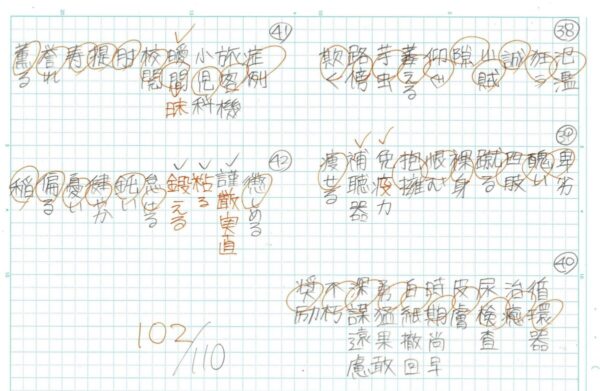 ㊳
氾濫
狂う
誠
山賊
隙
仰ぐ
芋虫
路傍
欺く
㊴
卑劣
醜い
蹴る
裸身
恨む
抱擁
免疫力
補聴器
痩せる
㊵
循環器
治癒
尿検査
皮膚
時期尚早
白紙撤回
勇猛果敢
深謀遠慮
不朽
奨励
㊶
症例
旅客機
小児科
昧
校閲
肘
提
寿
誉れ
薫る
㊷
懲しめる
謹厳実直
粘る
鍛える
怠ける
鈍い
健やか
憂い
偏る
稲
102/110